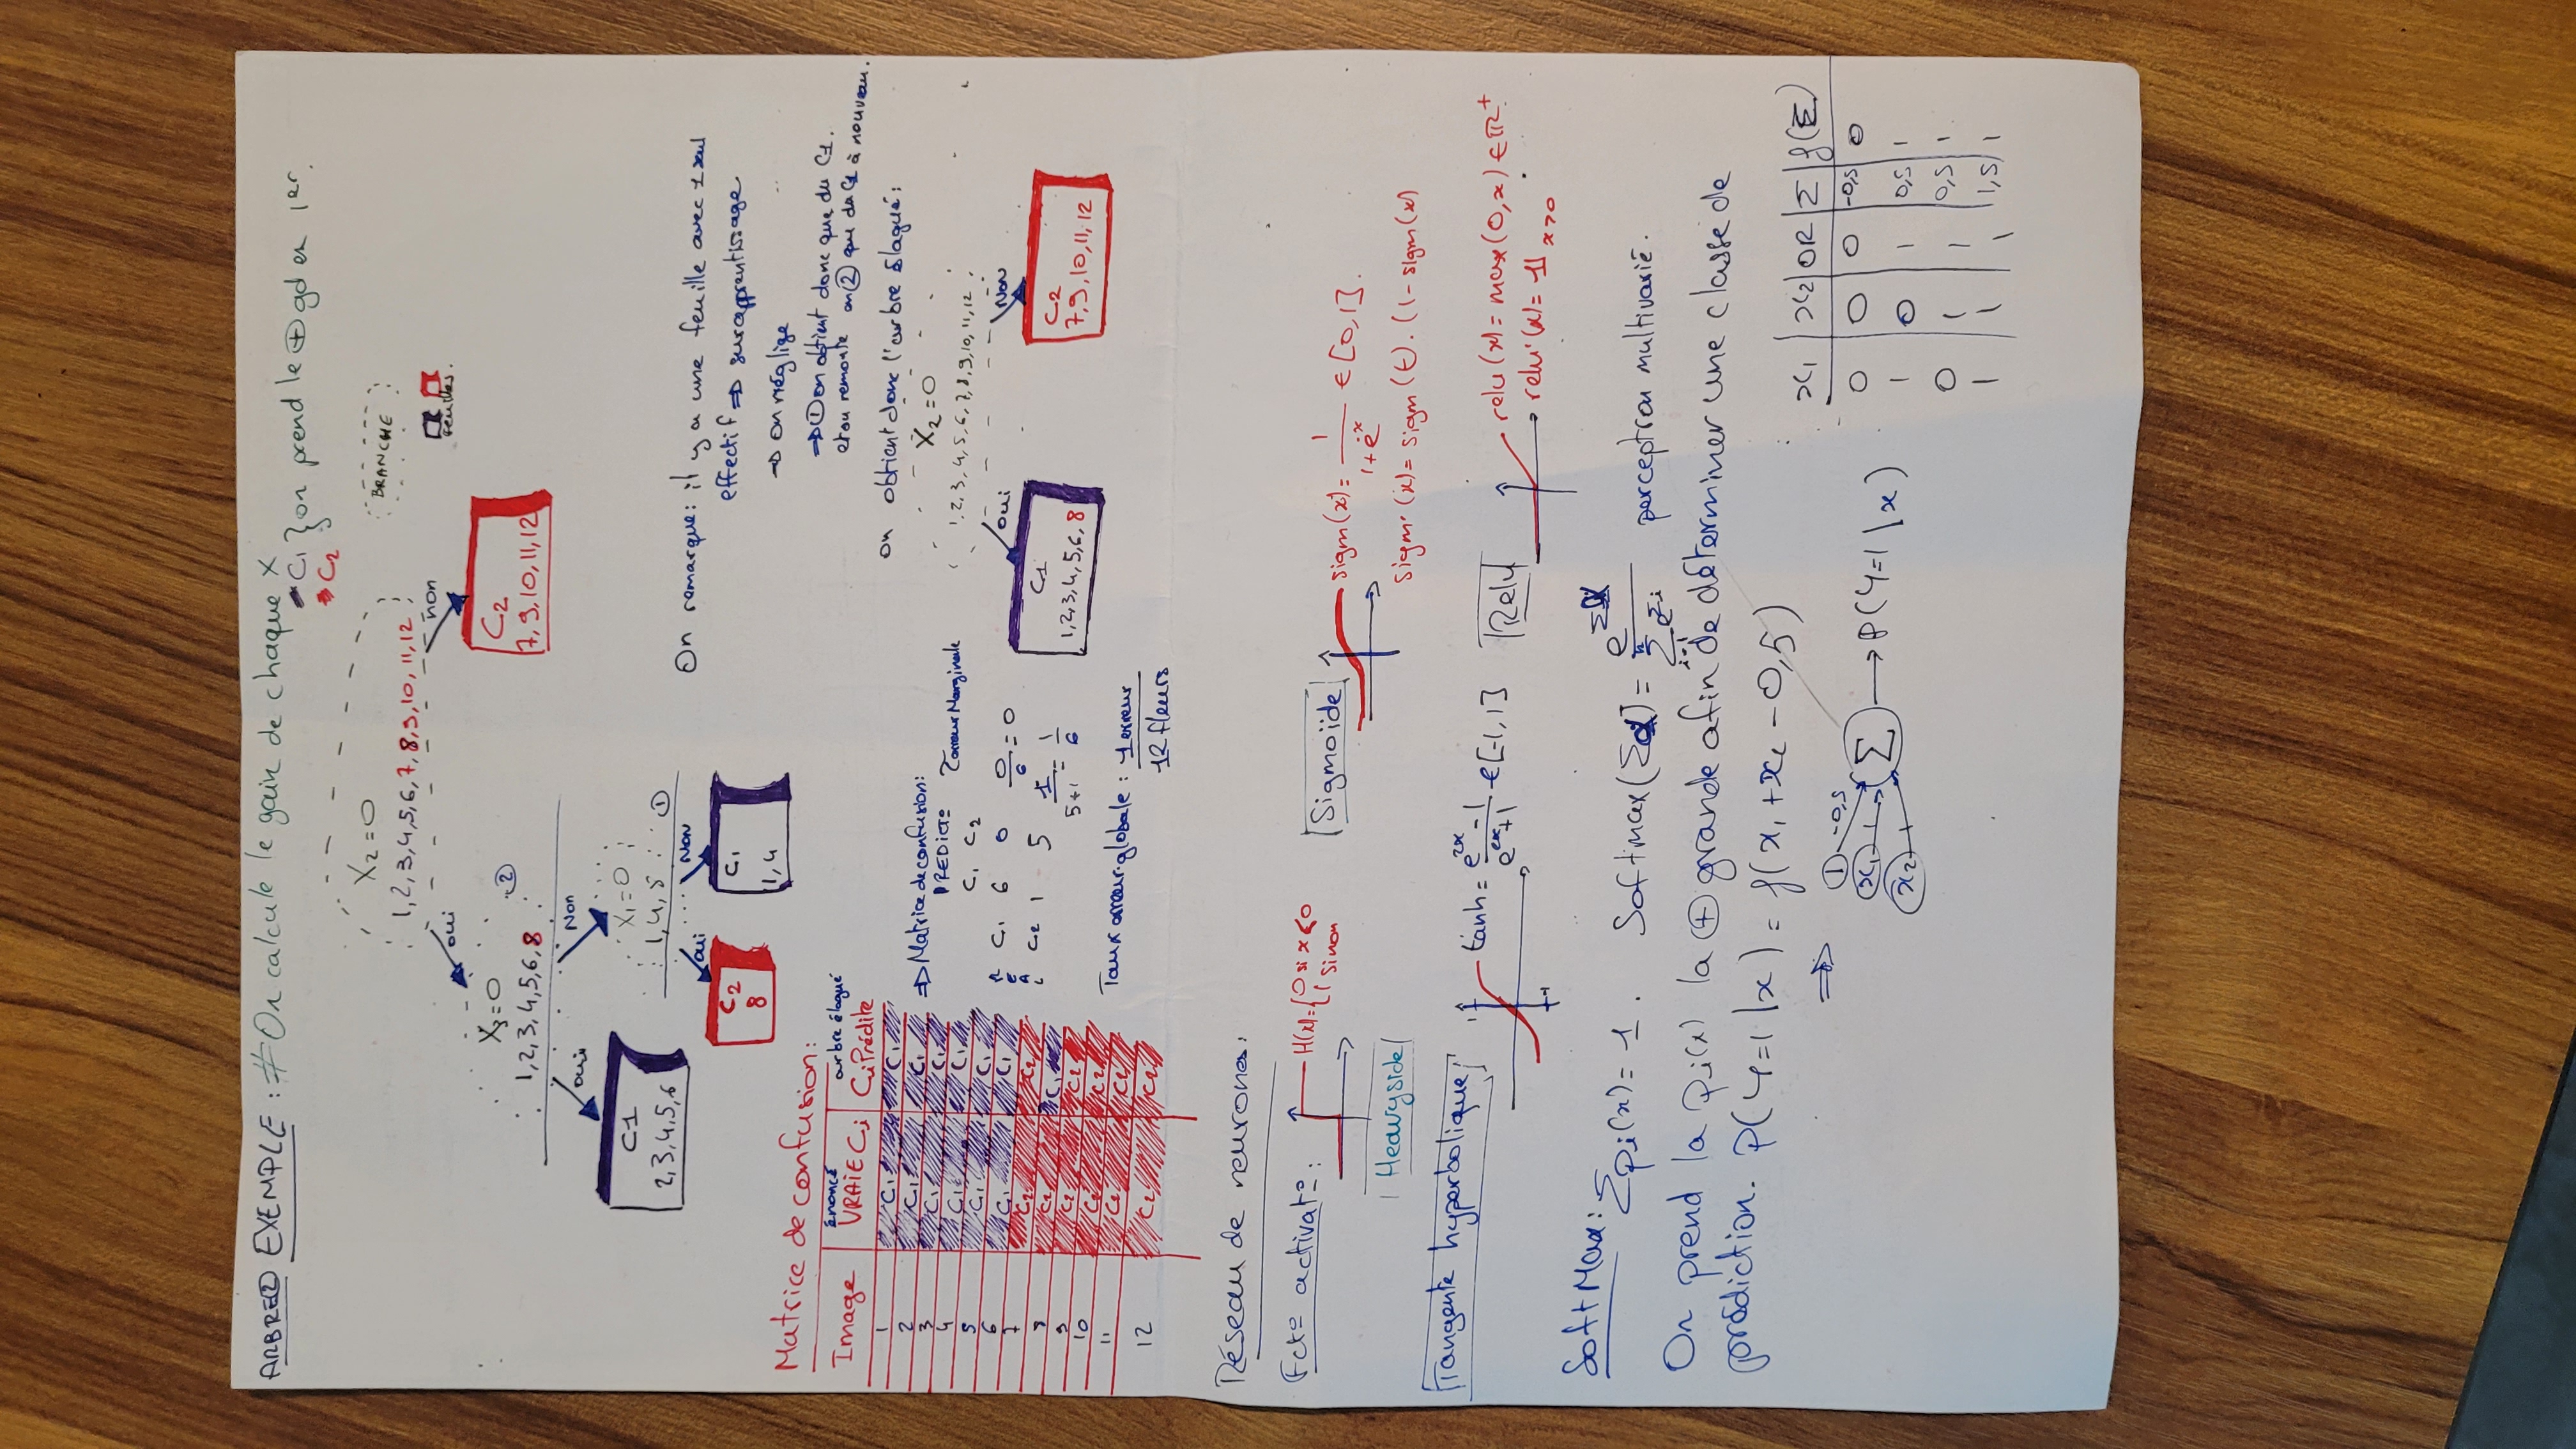 ARBRE② EXEMPLE : # On calcule le gain de chaque X
C1 } on prend le ⊕ gd en 1er.
C2
X2 = 0
1,2,3,4,5,6,7,8,9,10,11,12
BRANCHE
feuilles.
oui
non
X3 = 0
1,2,3,4,5,6,8
②
C2
7,9,10,11,12
oui
Non
C1
2,3,4,5,6
X1 = 0
1,4,8
①
oui
NON
C2
8
C1
1,4
On remarque: il y a une feuille avec 1 seul
effectif ⇒ surapprentissage
→ on néglige
⇒ ① on obtient donc que du C1.
et on remonte en ② que du C1 à nouveau.
on obtient donc l'arbre élagué:
X2 = 0
1,2,3,4,5,6,7,8,9,10,11,12
oui
Non
C1
1,2,3,4,5,6,8
C2
7,9,10,11,12
Matrice de confusion:
Image | énoncé VRAIE Ci | arbre élagué Ci Prédite
1 C1 C1
2 C1 C1
3 C1 C1
4 C1 C1
5 C1 C1
6 C1 C1
7 C2 C2
8 C2 C1
9 C2 C2
10 C2 C2
11 C2 C2
12 C2 C2
⇒ Matrice de confusion:
PREDICTº Terreur Marginale
C1 C2
REAL
C1 6 0 0/6 = 0
C2 1 5 1/5+1 = 1/6
Taux erreur globale : 1 erreur / 12 fleurs
Réseau de neurones:
Fctº activatº:
H(x)={0 si x<0
1 sinon
Heavyside
Sigmoïde
sigm(x)= 1/(1+e^-x) ∈ [0,1].
sigm'(x)= sigm(t).(1-sigm(x)
Tangente hyperbolique
1
-1
tanh = (e^2x - 1)/(e^2x + 1) ∈ [-1,1]
Relu
relu(x)= max(0,x) ∈ ℝ+
relu'(x)= 𝟙 x>0
SoftMax: Σpi(x)=1. Softmax(Σ )= e^Σ / Σ(i=1, n) e^Σi perceptron multivarié.
On prend la pi(x) la ⊕ grande afin de déterminer une classe de
prédiction. P(Y=1|x) = f(x1+x2-0,5)
⇒
1 -0,5
x1 1
x2 1
Σ → P(Y=1|x)
x1 | x2 | OR | Σ | f(Σ)
0 0 0 -0,5 0
1 0 1 0,5 1
0 1 1 0,5 1
1 1 1 1,5 1